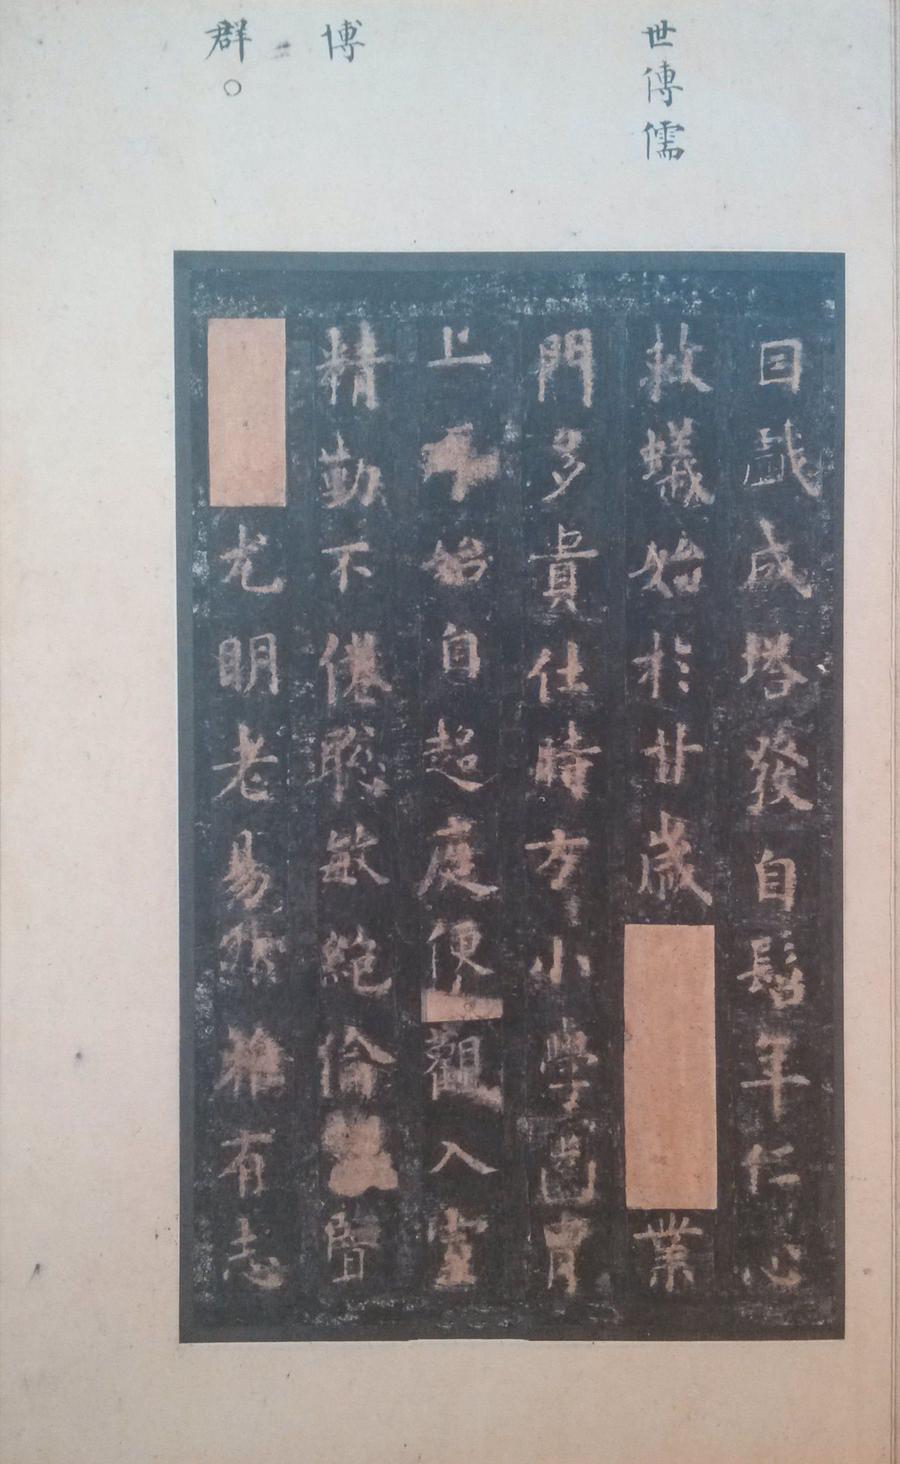 世傳儒
博
群○
囙戲成塔發自髫年仁心
救蟻始於廿歲業
門多貴仕時方小學齒胄
上始自庭便觀入室
精勤不倦聰敏絕倫
尤明老易雅有志